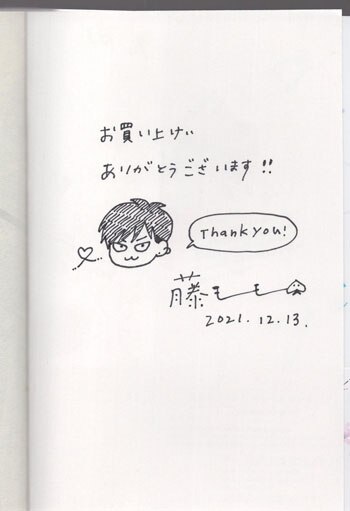 お買い上げい
ありがとうございます!!
Thank you!
藤モモ
2021.12.13.